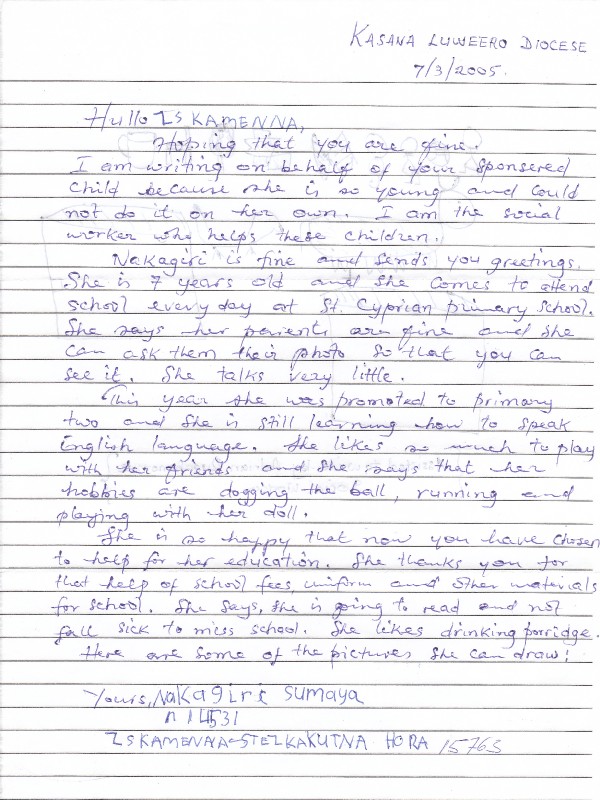 KASANA LUWEERO DIOCESE
7/3/2005.
Hullo ZS KAMENNA,
Hoping that you are fine.
I am writing on behalf of your sponsered
child because she is so young and could
not do it on her own. I am the social
worker who helps these children.
Nakagiri is fine and sends you greetings.
She is 7 years old and she comes to attend
school every day at St. Cyprian primary school.
She says her parents are fine and she
can ask them their photo so that you can
see it. She talks very little.
This year she was promoted to primary
two and she is still learning how to speak
English language. She likes so much to play
with her friends and she says that her
hobbies are dogging the ball, running and
playing with her doll.
She is so happy that now you have chosen
to help for her education. She thanks you for
that help of school fees, uniform and other materials
for school. She says, she is going to read and not
fall sick to miss school. She likes drinking porridge.
Here are some of the pictures she can draw!
Yours, Nakagiri Sumaya
ZSKAMENNA-STELKAKUTNA HORA 15763